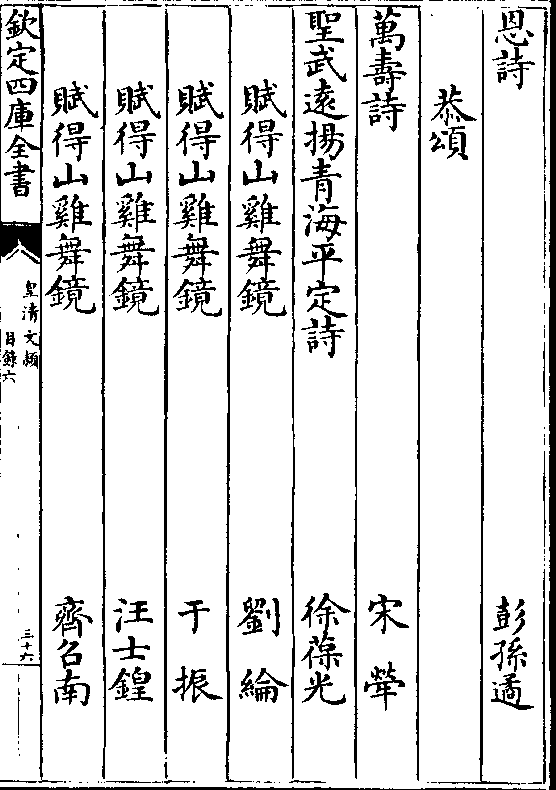 恩詩　彭孫遹
恭頌
萬壽詩　宋犖
聖武遠揚青海平定詩　徐葆光
賦得山雞舞鏡　劉綸
賦得山雞舞鏡　于振
賦得山雞舞鏡　汪士鍠
賦得山雞舞鏡　齊召南
欽定四庫全書
皇清文穎
目錄六
三十六